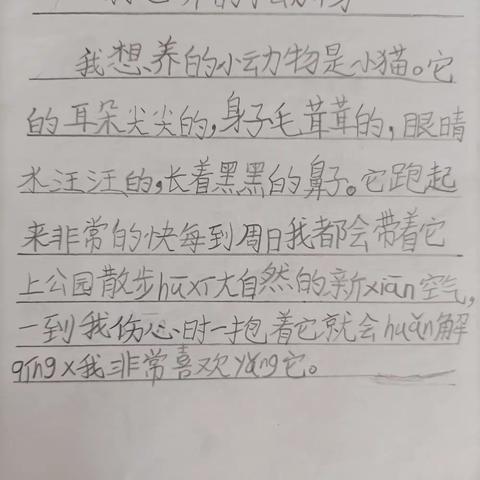 我想养的小动物是小猫。它
的耳朵尖尖的,身子毛茸茸的,眼晴
水汪汪的,长着黑黑的鼻子。它跑起
来非常的快每到周日我都会带着它
上公园散步hūxī大自然的新xiān空气,
一到我伤心时一抱着它就会huǎn解
qīng x我非常喜欢yǎng它。